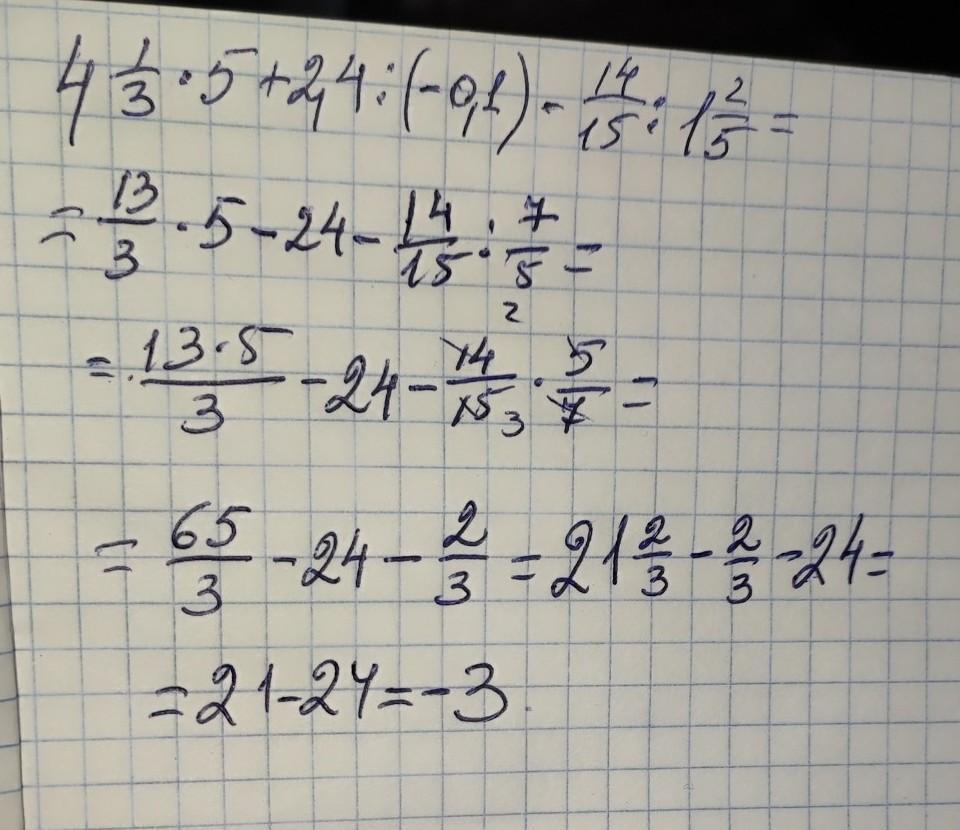 4 1/3 · 5 + 2,4 : (-0,1) - 14/15 : 1 2/5 =
= 13/3 · 5 - 24 - 14/15 : 7/5 =
= 13·5/3 - 24 - 14 2/15 3 · 5/7 =
= 65/3 - 24 - 2/3 = 21 2/3 - 2/3 - 24 =
= 21 - 24 = -3